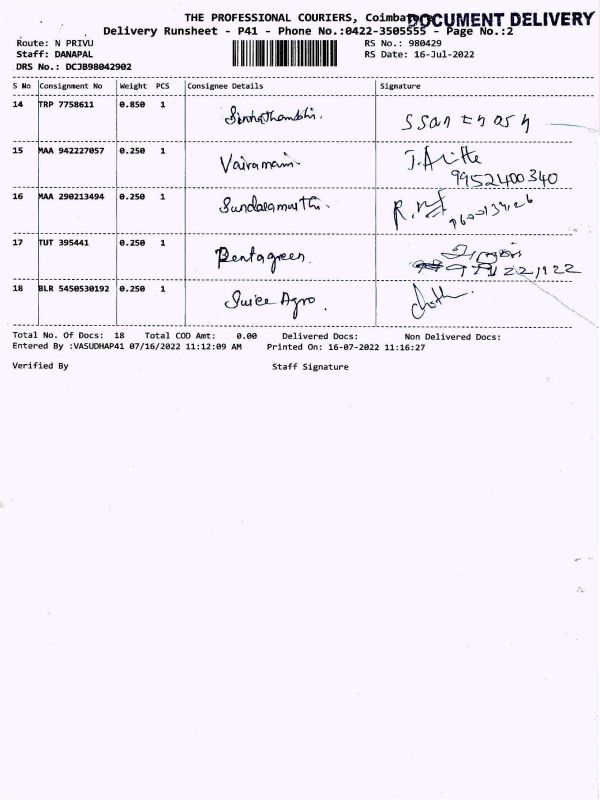 THE PROFESSIONAL COURIERS, Coimbatore
DOCUMENT DELIVERY
Delivery Runsheet - P41 - Phone No.:0422-3505555 - Page No.:2
Route: N PRIVU
RS No.: 980429
Staff: DANAPAL
RS Date: 16-Jul-2022
DRS No.: DCJB98042902
S No Consignment No Weight PCS Consignee Details Signature
14 TRP 7758611 0.850 1 Sinnathambi.
15 MAA 942227057 0.250 1 Vairamani. 9952400340
16 MAA 290213494 0.250 1 Sundaramurthi.
17 TUT 395441 0.250 1 Pentagreen.
18 BLR 5450530192 0.250 1 Juice Agro.
Total No. Of Docs: 18 Total COD Amt: 0.00 Delivered Docs: Non Delivered Docs:
Entered By :VASUDHAP41 07/16/2022 11:12:09 AM Printed On: 16-07-2022 11:16:27
Verified By Staff Signature